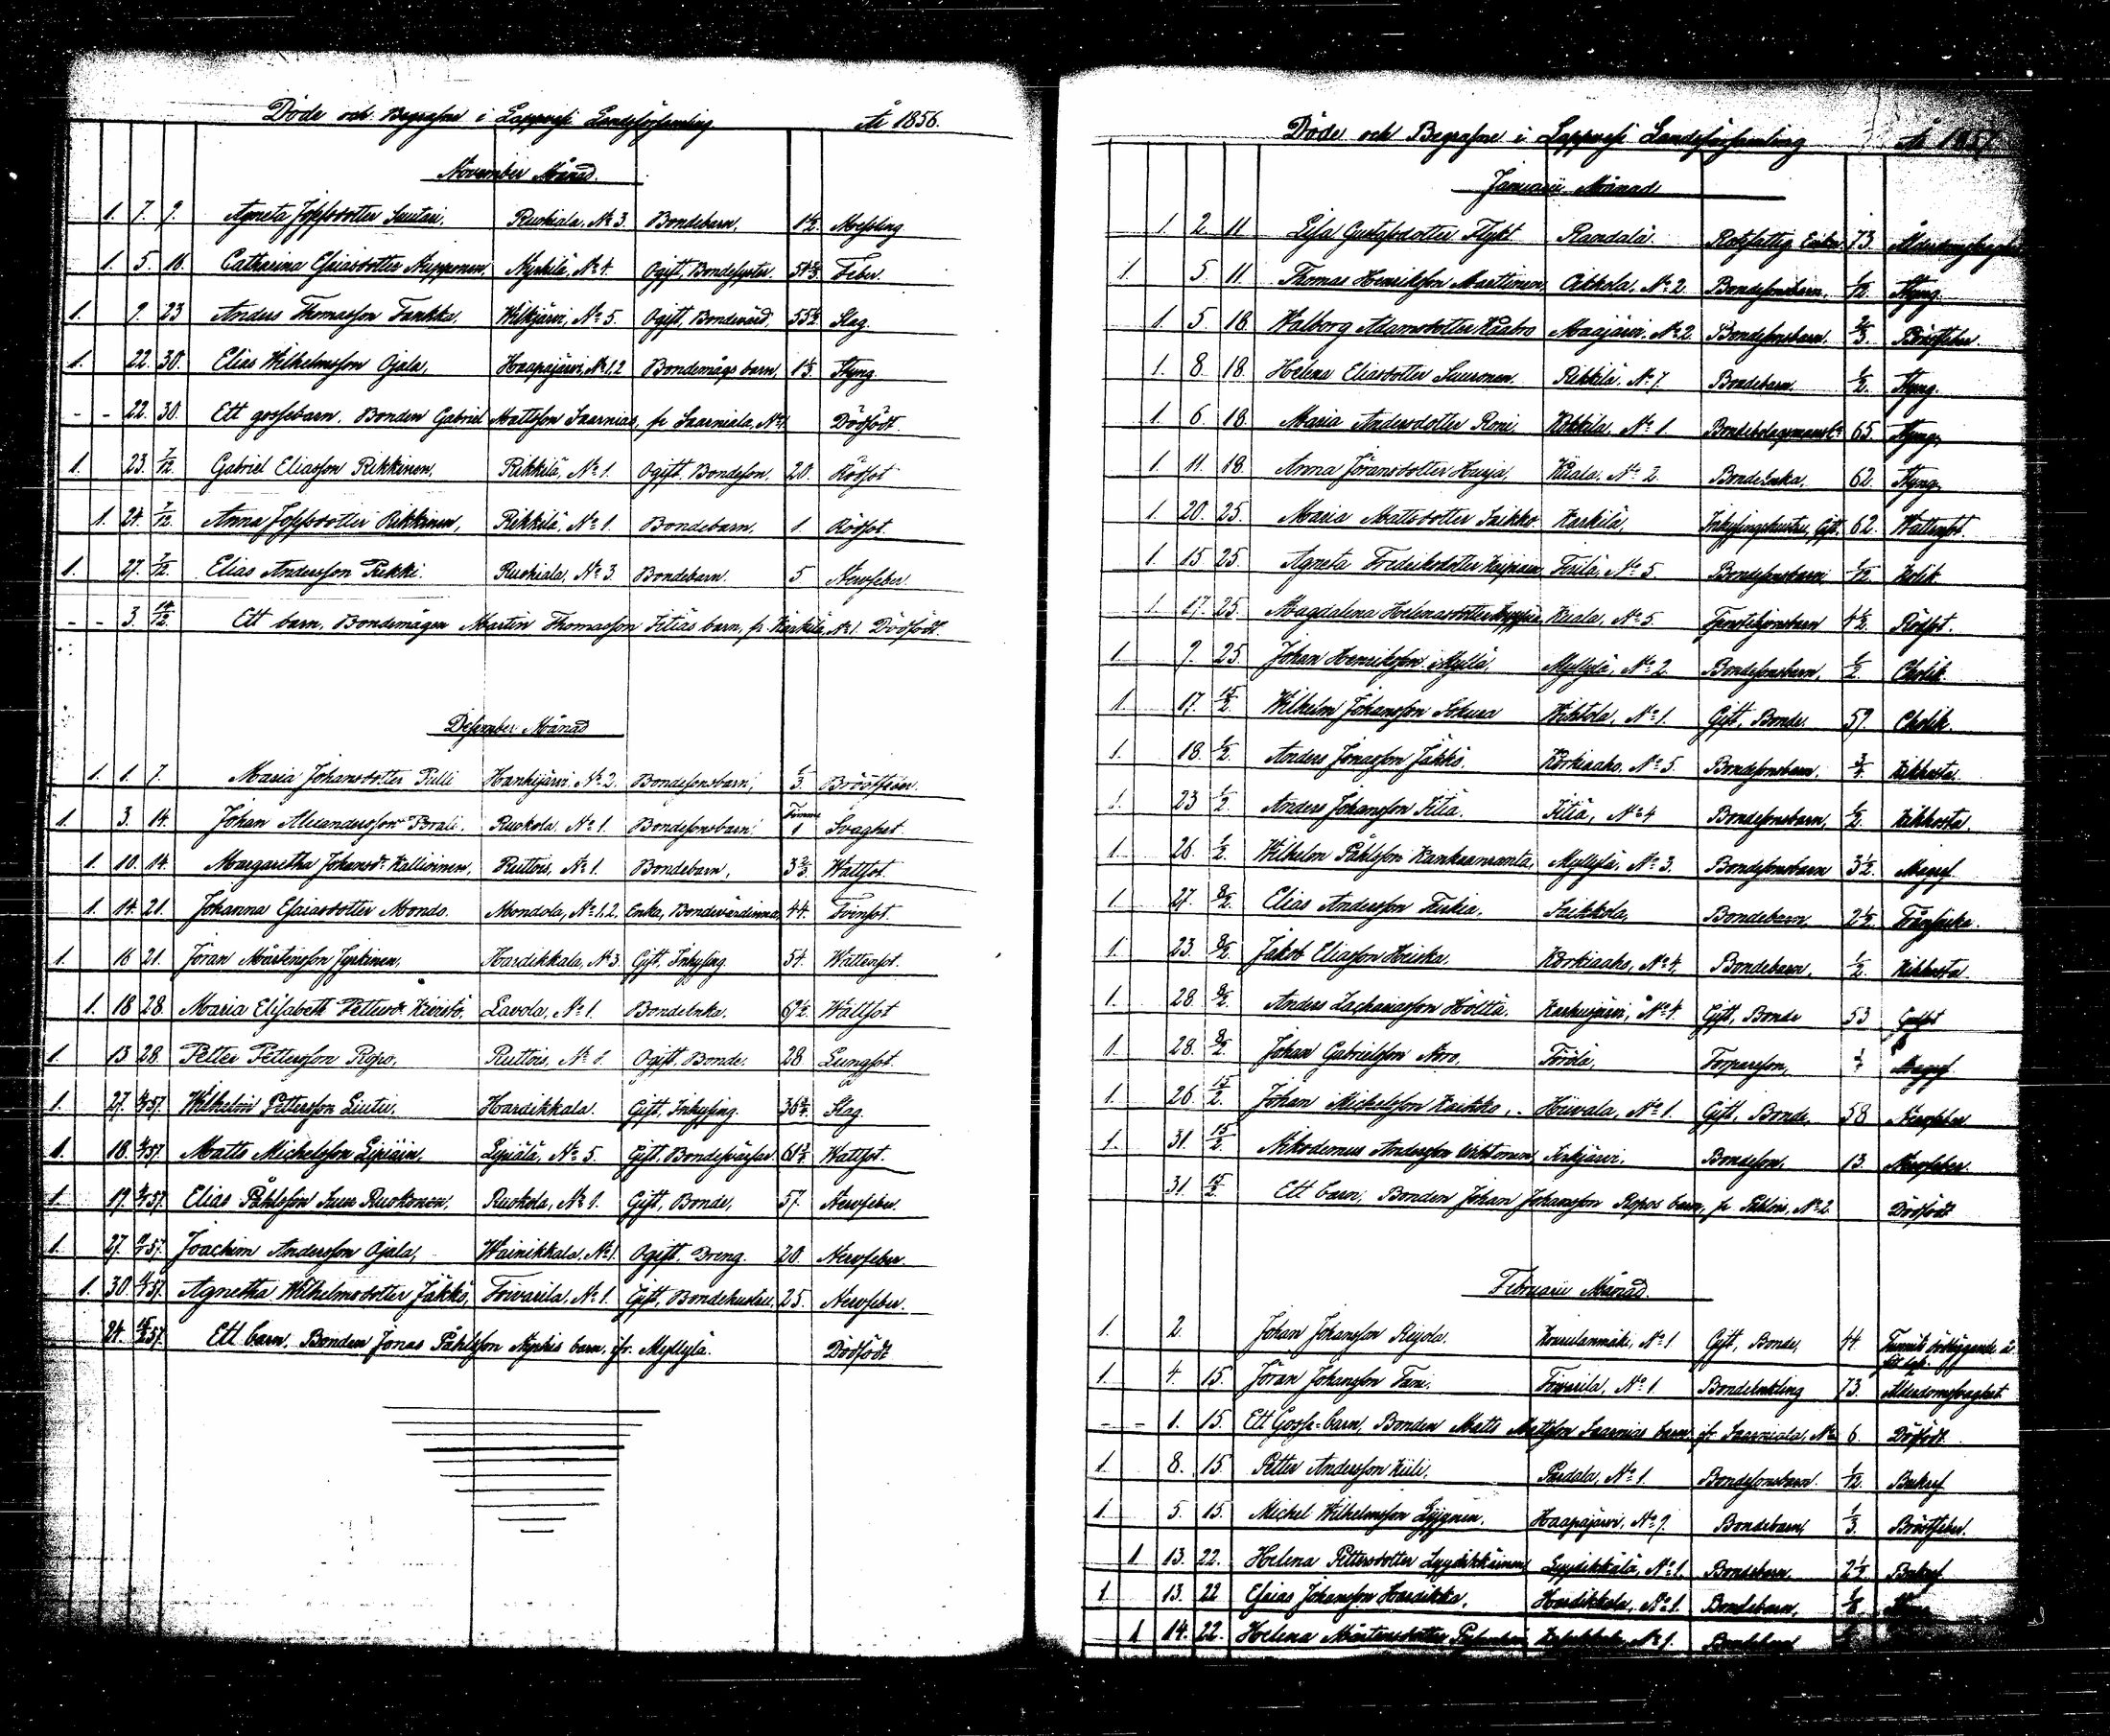 Döde och Begrafne i Lappvesi Landsförsamling År 1856.
November Månad.
1. 7. 9. Agneta Josefsdotter Suutari, Ruohiala, No 3. Bondebarn, 1½. Messling
1. 5. 16. Catharina Esaiasdotter Nupponen, Nyrhilä, No 4. Ogift, Bondesyster. Feber.
1. 9. 23 Anders Thomasson Tankka, Wilkjärvi, No 5. Ogift, Bondevärd, 55½. Slag.
1. 22. 30. Elias Wilhelmsson Ojala, Haapajärvi, No 12 Bondemågs barn, 1⅓. Styng
- - 22. 30. Ett gossebarn. Bonden Gabriel Mattsson Saarnias, fr Saarniala, No 1. Dödfödt.
1. 23. 7/12. Gabriel Eliasson Rikkinen, Rikkilä, No 1. Ogift. Bondeson. 20. Rödsot
1. 24. 7/12. Anna Josefsdotter Rikkinen, Rikkilä, No 1. Bondebarn, 1. Rödsot.
1. 27. 7/12. Elias Andersson Pukki. Ruohiala, No 3. Bondebarn. 5. Nervfeber.
- - 3. 14/12. Ett barn, Bondemågen Martin Thomasson Kitiäs barn, fr. Karkila, No 1. Dödfödt.
December Månad
1. 1. 7. Maria Johansdotter Pulli Hanhijärvi No 2. Bondesonsbarn, ⅓. Bröstfeber.
1. 3. 14. Johan Alexandersson Brali. Ruokola No 1. Bondesonsbarn. Timme 1 Svaghet.
1. 10. 14. Margaretha Johansdr Kallioinen, Ruttois, No 1. Bondebarn, 3⅔. Wattsot.
1. 14. 21. Johanna Esaiasdotter Mondo. Mondola, No 12. Enka, Bondevärdinna, 44. Tvinsot.
1. 16 21. Jöran Mårtensson Jyrkinen, Hardikkala, No 3. Gift, Inhysing. 54. Wattensot.
1. 18 28. Maria Elisabeth Pettersdr Kiviistö. Lavola, No 1. Bondeenka. 69½. Wattsot
1. 13 28. Petter Pettersson Ropo, Ruttois, No 1. Ogift Bonde. 28 Lungsot.
1. 27. 4/1 57. Wilhelm Pettersson Liutu. Hardikkala. Gift, Inhysing. 36¾. Slag.
1. 18. 4/1 57. Matts Michelsson Lipiäin. Lypiälä, No 5. Gift, Bondesvärfar. 61¾. Wattsot.
1. 19. 57. Elias Påhlsson Suur Ruokonen, Ruokola, No 1. Gift, Bonde, 57. Nervfeber.
1. 27. 57. Joachim Andersson Ojala, Wainikkala, No 1. Ogift, Dreng. 20. Nervfeber.
1. 30. 57. Agnetha Wilhelmsdotter Jäkkö, Toivarila, No 1. Gift, Bondehustru, 25. Nervfeber.
24. 57. Ett barn, Bonden Jonas Påhlsson Nyrhis barn, fr. Myllylä. Dödfödt
Döde och Begrafne i Lappvesi Landsförsamling År 1857.
Januarii Månad
1. 2. 11 Lisa Gustafsdotter Flykt Randala. Rotefattig Enka, 73. Ålderdomsbräcklighet
1. 5 11 Thomas Henriksson Marttinen, Oikkola, No 2. Bondesonsbarn, 1/12. Styng.
1. 5. 18. Walborg Adamsdotter Kaabro Maajärvi, No 2. Bondesonsbarn, ⅔. Bröstfeber.
1. 8. 18. Helena Eliasdotter Sauronen. Rikkilä. No 7. Bondebarn. ½. Styng.
1. 6. 18. Maria Andersdotter Roni, Kokkila, No 1. Bondebolagsmans E. 65. Styng.
1. 11. 18. Anna Jöransdotter Harja, Kuala, No 2. BondeEnka, 62. Styng.
1. 20. 25. Maria Mattsdotter Saikko Karkila, Inhysingshustru, Gift, 62. Wattusot.
1. 15 25. Agneta Fredriksdotter Tiiselä, No 5. Bondesonsbarn 1/12 Kolik
1. 17. 25. Magdalena Helenasdotter Kuala, No 5. Tjenstehjonsbarn 4½. Rödsot.
1. 9. 25. Johan Henriksson Myllä, Myllylä, No 2. Bondesonsbarn, ½. Cholik.
1. 17. 15/2. Wilhelm Johansson Sokura Wihtola, No 1. Gift, Bonde. 59. Cholik.
1. 18. ½. Anders Jonasson Jäkkö. Korkiaaho, No 5. Bondesonsbarn, ¾. Kikhosta.
1. 23 ½. Anders Johansson Kitiä. Kitiä, No 4 Bondesonsbarn, ½. Kikhosta.
1. 26. ½. Wilhelm Påhlsson Kankaanranta, Myllylä, No 3. Bondesonsbarn 3½. Magref.
1. 27. 8/2. Elias Andersson Fiskia. Saikkola, Bondebarn, 2½. Trånsjuka.
1. 23. 8/2. Jakob Eliasson Heiska. Korkiaaho, No 4. Bondebarn, ½. Kikhosta
1. 28 8/2. Anders Zachariasson Hölttä. Karhusjärvi, No 4. Gift, Bonde 53 Gulsot
1. 28. 8/2. Johan Gabrielsson Noro, Törölä, Torparson, Magref.
1. 26. 15/2. Johan Michelsson Kaikko, Hiivala, No 1. Gift, Bonde. 58 Nervfeber.
1. 31. 15/2. Nikodemus Andersson Wihtonen, Kirkjärvi. Bondeson. 13. Nervfeber.
31. 15/2. Ett barn, Bonden Johan Johansson Ropos barn, fr No 2. Dödfödt
Februarii Månad.
1. 2. Johan Johansson Reijola. Kouvulanmäki, No 1 Gift, Bonde, 44.
1. 4. 15. Jöran Johansson Tani. Toivarila, No 1. Bondeenkling 73. Ålderdomssvaghet
- - 1. 15. Ett Gosse-barn, Bonden Matts Mattsson Saarnias barn fr. Saarniala, No 6. Dödfödt.
1. 8. 15. Petter Andersson Kiili, Pardala, No 1. Bondesonsbarn. 1/12. Bukref
1. 5. 15. Michel Wilhelmsson Lyijynen. Haapajärvi, No 9. Bondebarn, ⅓. Bröstfeber.
1 13. 22. Helena Pettersdotter Lyydikkäinen, Lyydikkälä, No 1. Bondebarn, Bukref
1 13. 22 Esaias Johansson Hardikka, Hardikkala, No 1. Bondebarn,
1 14. 22. Helena Mårtensdotter No 1. Bondebarn